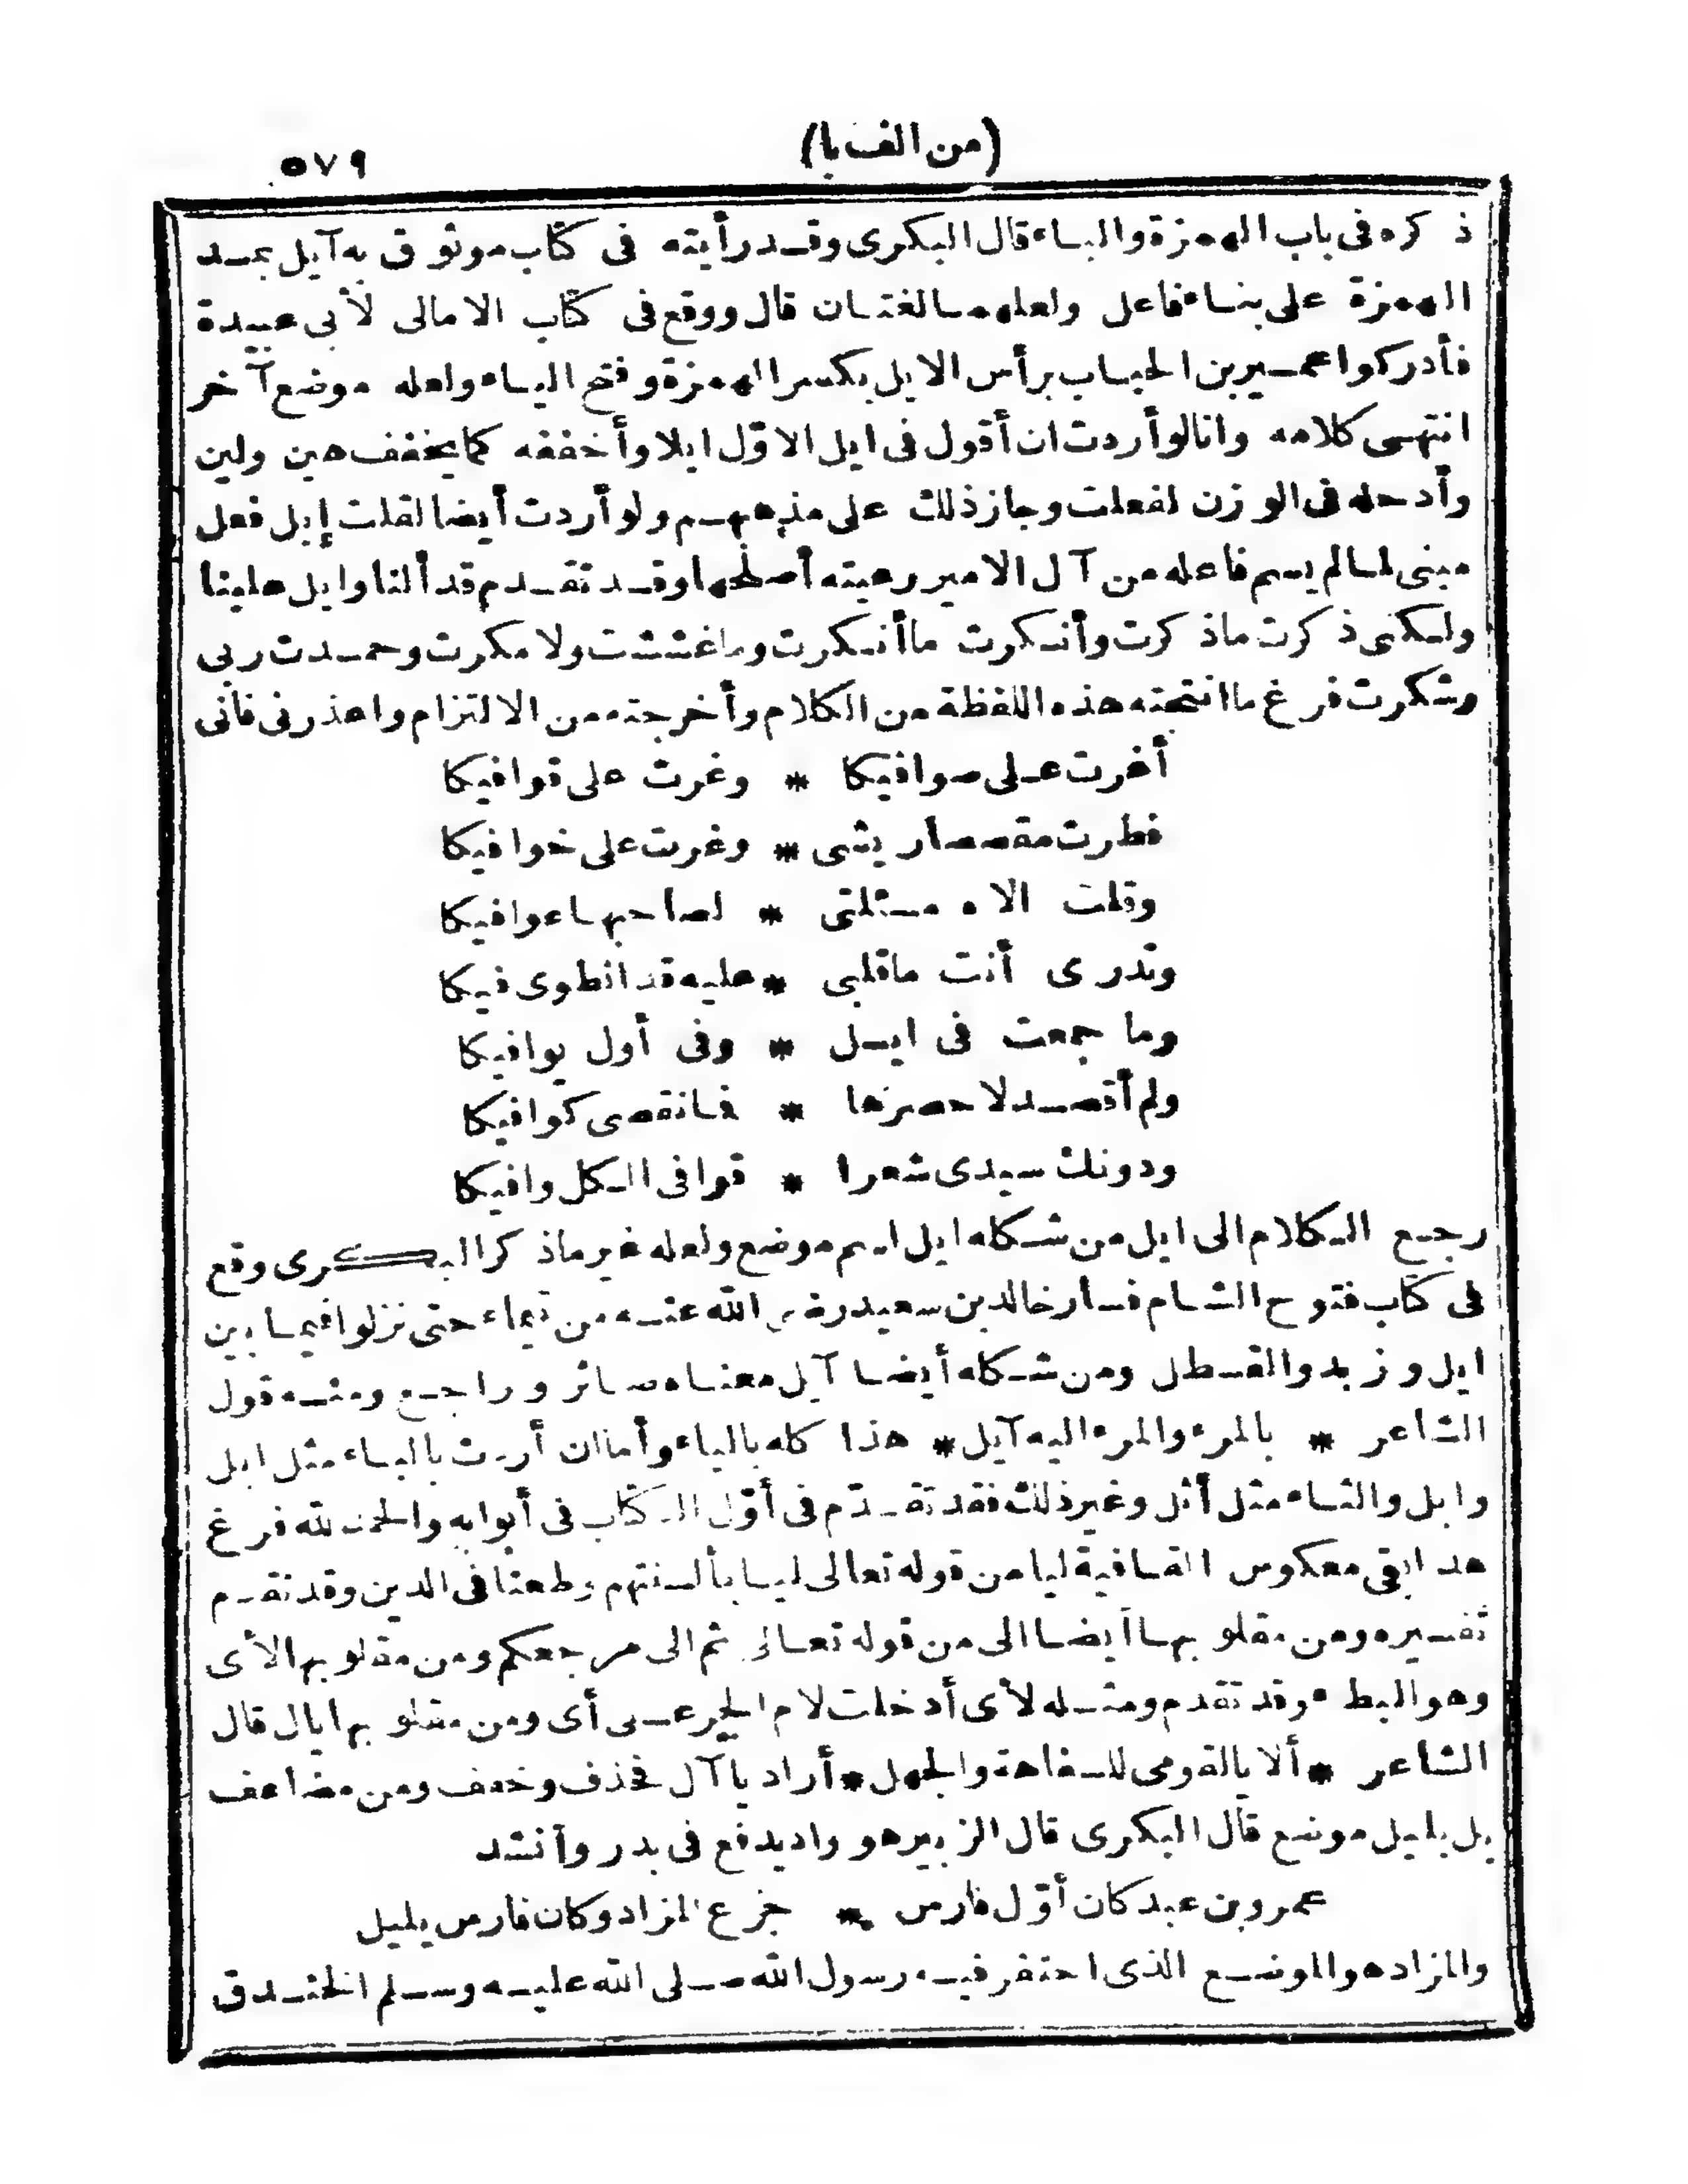 (من الف با)
٥٧٩
ذكره فى باب الهمزة والباء قال البكرى وقد رأيته فى كتاب موثوق به آيل بمد
الهمزة على بناء فاعل ولعلهما لغتان قال ووقع فى كتاب الامالى لأبى عبيدة
فأدركوا عمير بن الحباب برأس الايل بكسر الهمزة وفتح الياء ولعله موضع آخر
انتهى كلامه وانا لو أردت ان أقول فى ايل الاوّل ايلا وأخففه كما يخفف هين ولين
وأدخله فى الوزن لفعلت وجاز ذلك على مذهبهم ولو أردت أيضا لقلت إيل فعل
مبنى لما لم يسم فاعله من آل الامير رعيته أصلحها وقد تقدم قد ألنا وايل علينا
ولكنى ذكرت ماذكرت وأنكرت ما أنكرت وما غششت ولا مكرت وحمدت ربى
وشكرت فرغ ما انتجته هذه اللفظة من الكلام وأخرجته من الالتزام واعذرنى فانى
أغرت على صوافيكا * وغرت على قوافيكا
فطرت مقصصا ريشى * وغرت على خوافيكا
وقلت الاه مسئلتى * لصاحبها عوافيكا
وتدرى أنت ماقلبى * عليه قد انطوى فيكا
وما جمعت فى ايل * وفى أول يوافيكا
ولم أقصد لاحصرها * فانقصى كوافيكا
ودونك سيدى شعرا * قوافى الكل وافيكا
رجع الكلام الى ايل من شكله ايل اسم موضع ولعله غير ماذكر البكرى وقع
فى كتاب فتوح الشام فسار خالد بن سعيد رضى الله عنه من تيماء حتى نزلوا فيما بين
ايل وزيد والقسطل ومن شكله أيضا آيل معناه صائر وراجع ومنه قول
الشاعر * بالمرء والمرء اليه آيل * هذا كله بالياء وأما ان أردت بالباء مثل ابل
وابل والثاء مثل أثل وغير ذلك فقد تقدّم فى أوّل الكتاب فى أبوابه والحمد لله فرغ
هذا بقى معكوس القافية ليا من قوله تعالى ليا بألسنتهم وطعنا فى الدين وقد تقدم
تفسيره ومن مقلوبها أيضا الى من قوله تعالى ثم الى مرجعكم ومن مقلوبها لأى
وهو البطء وقد تقدم ومثله لأى أدخلت لام الجر على أى ومن مقلوبها يال قال
الشاعر * ألا يالقومى للسفاهة والجهل * أراد يا آل فحذف وخفف ومن مضاعف
يل يليل موضع قال البكرى قال الزبير هو واد يدفع فى بدر وأنشد
عمرو بن عبد كان أوّل فارس * جزع المزاد وكان فارس يليل
والمزاد هو الموضع الذى احتفر فيه رسول الله صلى الله عليه وسلم الخندق